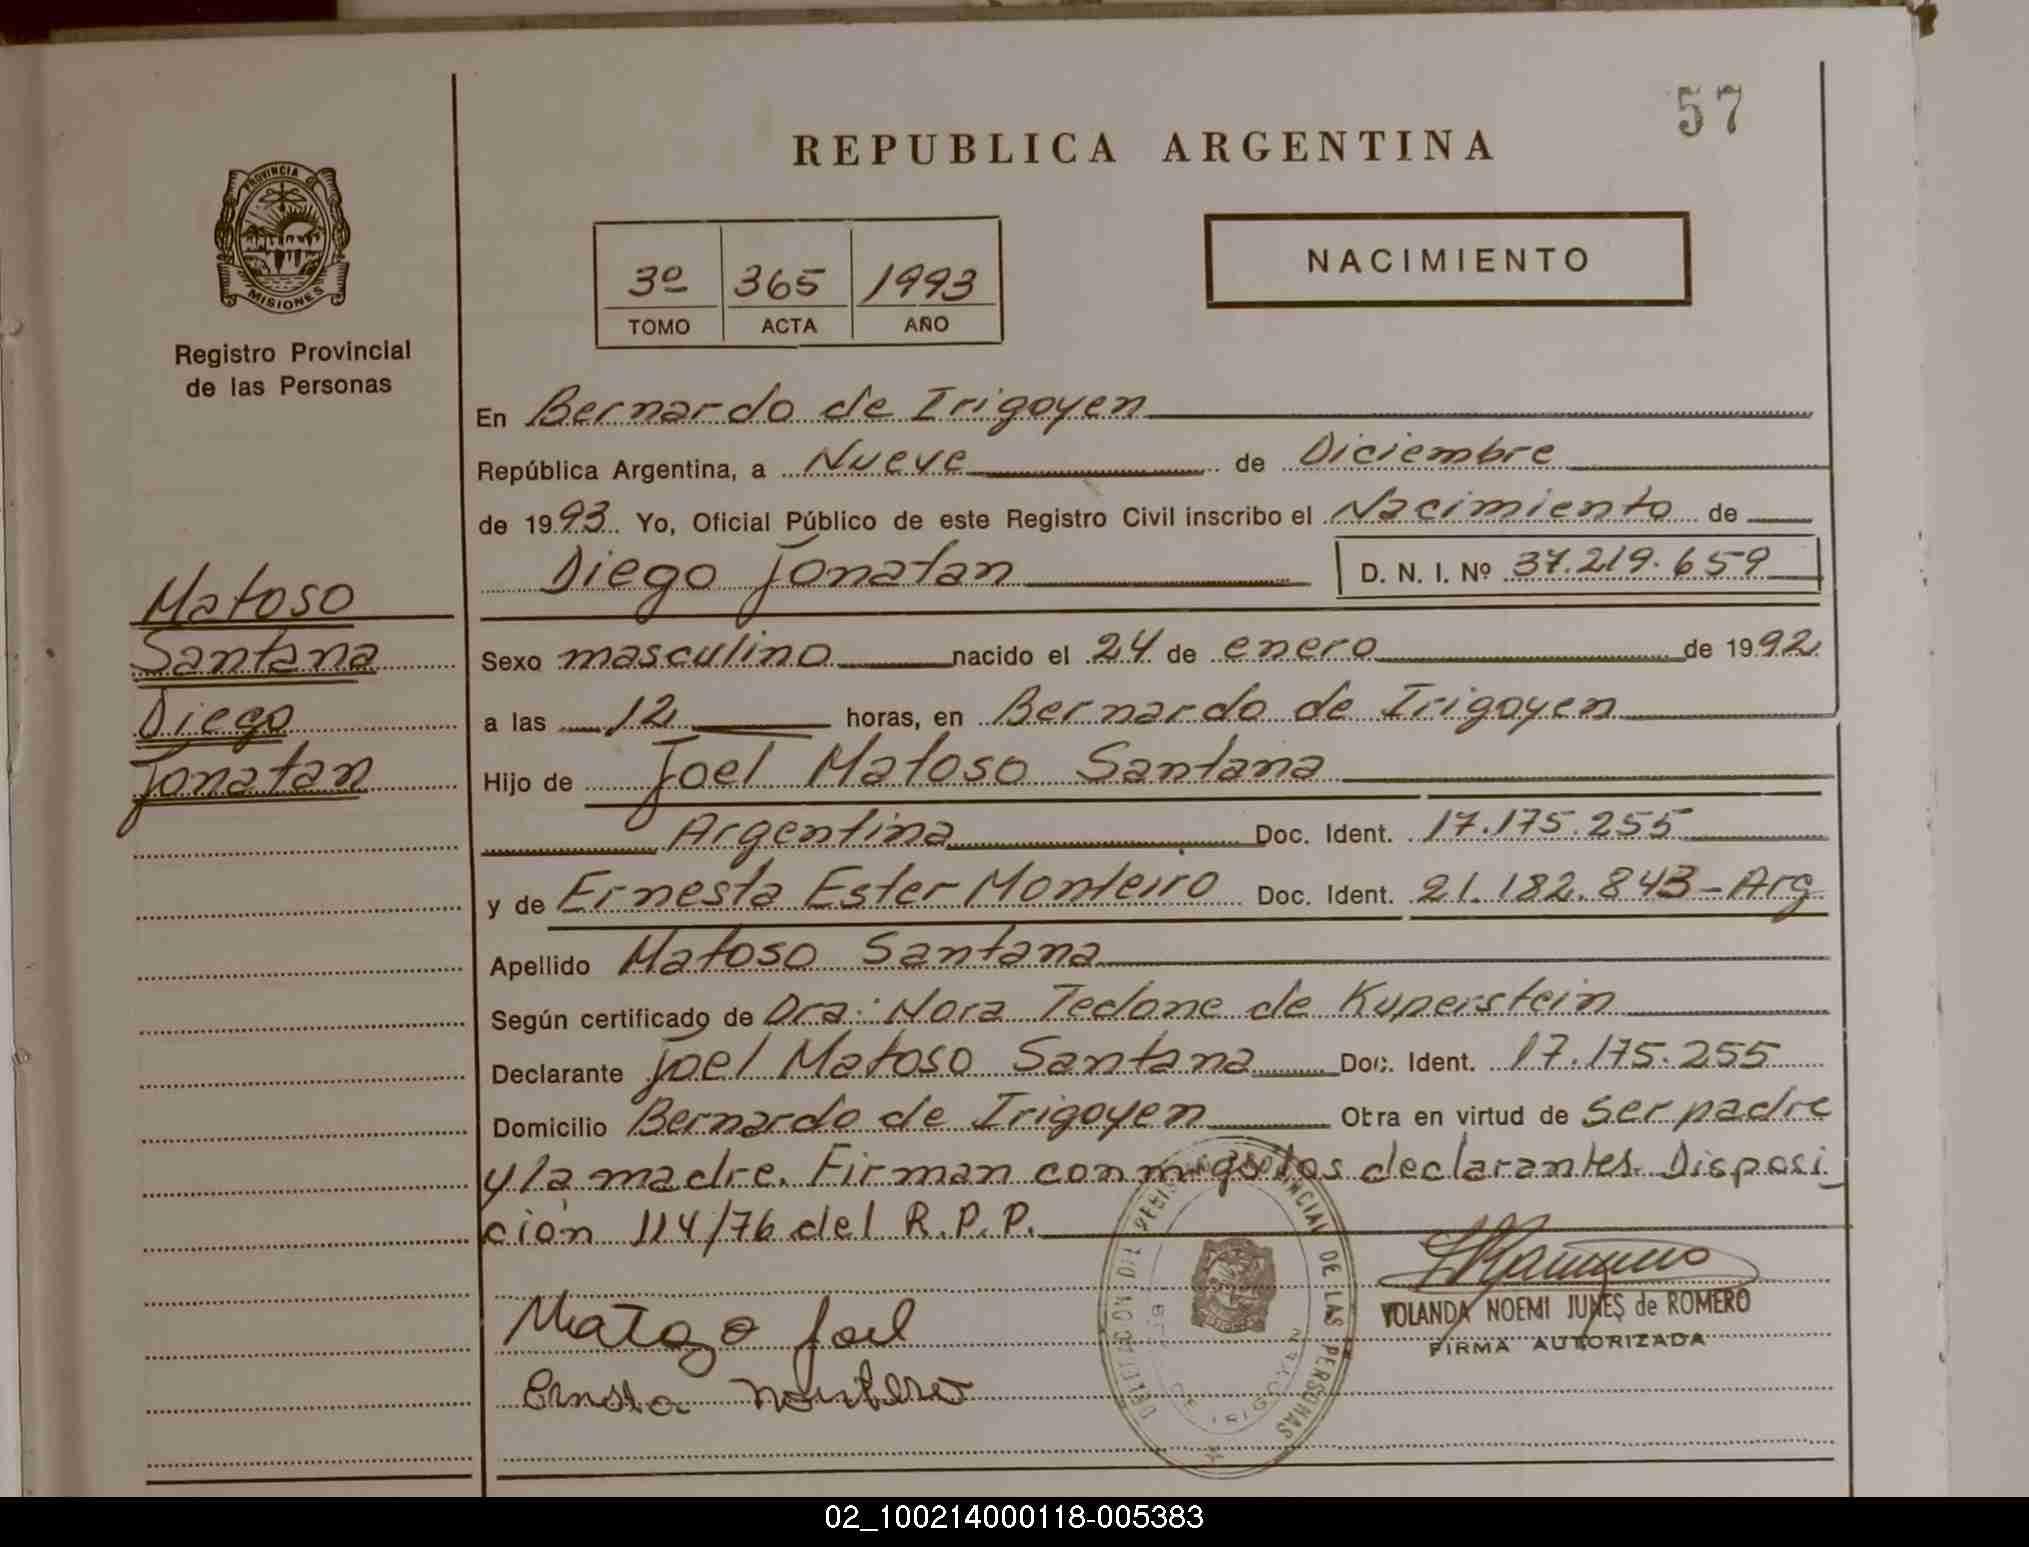 57
REPUBLICA ARGENTINA
PROVINCIA DE
MISIONES
Registro Provincial
de las Personas
3º 365 1993
TOMO ACTA AÑO
NACIMIENTO
En Bernardo de Irigoyen
República Argentina, a Nueve de Diciembre
de 1993 Yo, Oficial Público de este Registro Civil inscribo el Nacimiento de
Diego Jonatan D. N. I. Nº 37.219.659
Matoso
Santana
Diego
Jonatan
Sexo masculino nacido el 24 de enero de 1992
a las 12 horas, en Bernardo de Irigoyen
Hijo de Joel Matoso Santana
Argentina Doc. Ident. 17.175.255
y de Ernesta Ester Monteiro Doc. Ident. 21.182.843-Arg
Apellido Matoso Santana
Según certificado de Dra: Nora Tedone de Kuperstein
Declarante Joel Matoso Santana Doc. Ident. 17.175.255
Domicilio Bernardo de Irigoyen Obra en virtud de ser padre
y la madre. Firman conmigo los declarantes. Disposi
ción 114/76 del R.P.P.
DELEGACION DEL REGISTRO PROVINCIAL DE LAS PERSONAS
DE IRIGOYEN
YOLANDA NOEMI JUNES de ROMERO
FIRMA AUTORIZADA
Matozo Joel
Ernesta
02_100214000118-005383